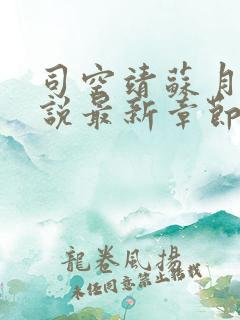 司空靖蘇月
說最新章節
龍卷風揚
未任同意禁止轉載